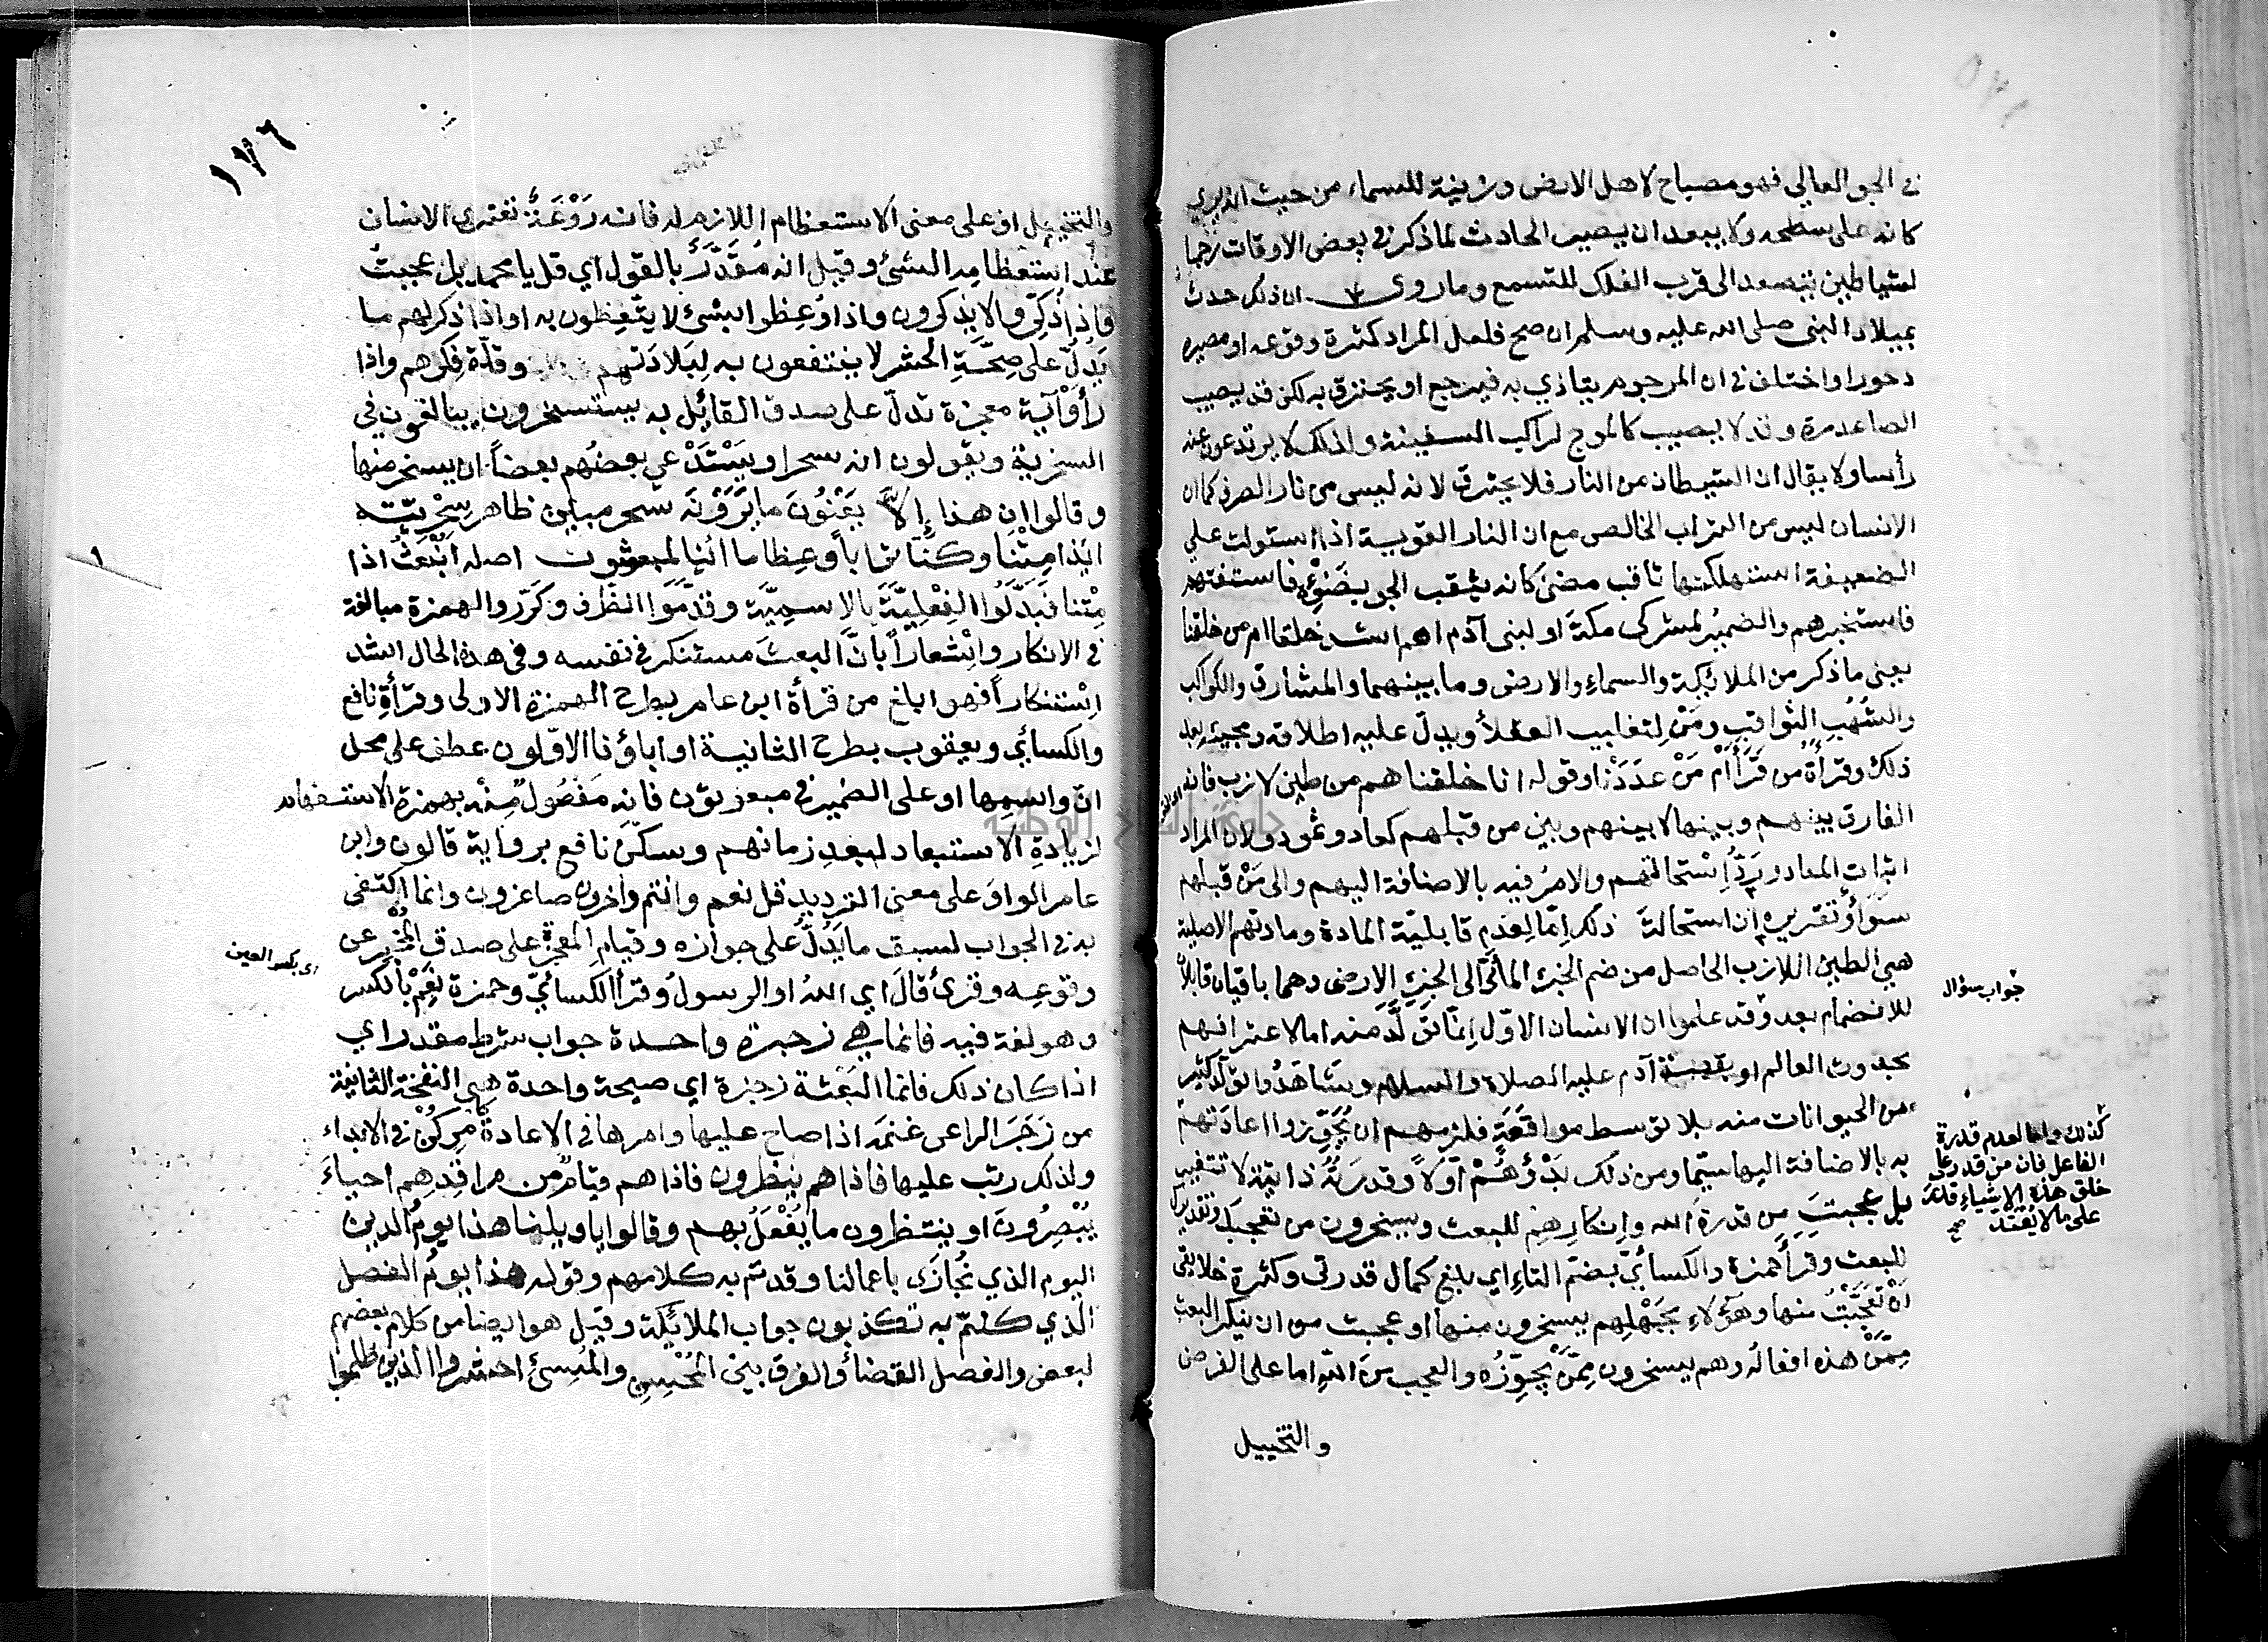 في الجو العالي فهو مصباح لاهل الارض وزينة للسماء من حيث انه يري
كانه على سطحه ولا يبعد ان يصير الحادث لما ذكر في بعض الاوقات رجما
لشياطين تتصعد الى قرب الفلك للتسمع وما روى ان ذلك حدث
بميلاد النبي صلى الله عليه وسلم ان صح فلعل المراد كثرة وقوعه او مصيره
دحورا واختلف في ان المرجوم يتاذي به فيرجع او يحترق به لكن قد يصيب
الصاعد مرة وقد لا يصيب كالموج لراكب السفينة ولذلك لا يرتدعون عنه
رأسا ولا يقال ان الشيطان من النار فلا يحترق لانه ليس من نار الصرف كما ان
الانسان ليس من التراب الخالص مع ان النار القوية اذا استولت علي
الضعيفة استهلكتها ثاقب مضئ كانه يثقب الجو بضوئه فاستفتهم
فاستخبرهم والضمير لمشركى مكة او لبنى آدم اهم اشد خلقا ام من خلقنا
يعنى ما ذكر من الملائكة والسماء والارض وما بينهما والمشارق والكواكب
والشُهُب الثواقب ومَنْ لتغليب العقلأ ويدلّ عليه اطلاقه ومجيئه بعد
ذلك وقرأة من قَرَأ أم مَنْ عدَدْنا وقوله انا خلقناهم من طين لازب فانه
الفارق بينهم وبينها لا بينهم وبين من قبلهم كعاد وثمود ولان المراد
اثبات المعاد وردُّ استحالتهم والامرُ فيه بالاضافة اليهم والى مَنْ قبلهم
سَوَأ وتقريره ان استحالة ذلك اِمّا لِعَدَمِ قابليّة المادة ومادتهم الاصلية
هي الطين اللازب الحاصل من ضم الجزء المائى الى الجزء الارضى وهما باقيان قابلان
للانضمام بعد وقد علموا ان الانسان الاوّل اِنّما تولَّدَ منه اما لاعترافهم
بحدوث العالم او بقصة آدم عليه الصلاة والسلام وشاهَدُوا تولّد كثير
من الحيوانات منه بلا توسط مواقَعَةٍ فلزمهم ان يُجَوِّزوا اعادَتَهم
جواب سؤال
كذلك واما لعدم قدرة
الفاعل فان من قدر على
خلق هذه الاشياء قدر
على ما لا يُعْتَدّ صح
به بالاضافة اليها سيّما ومن ذلك بَدْؤُهُمْ اوّلاً وقدرَتُهُ ذاتية لا تتغير
بل عجبتَ مِن قدرة الله وانكارِهِم للبعث ويسخرون من تعجبك وتقديرك
للبعث وقرأ حمزة والكسائيّ بضمّ التاء اي بلغ كمال قدرتى وكثرة خلائقى
ان تَعَجَّبْتُ منها وهؤلاءِ بجَهْلِهِم يسخرون منها او عجبت من ان ينكر البعث
مِمَّنْ هذه افعاله وهم يسخرون مِمَّنْ يُجَوِّزُه والعجب من اللّه اما على الفرض
والتخييل
١٧٦
والتخييل او على معنى الاستعظام اللازم له فانه رَوْعَةٌ تعترى الانسان
عند استعظامه الشئ وقيل انه مُقَدَّرٌ بالقول اي قل يا محمد بل عجبتُ
واذا ذكّروا لا يذكرون واذا وُعِظوا بشئ لا يتّعظون به او اذا ذكر لهم ما
يَدُلّ على صِحَّةِ الحشر لا ينتفعون به لِبَلادَتِهِم وقلّة فكرهم واذا
رأوْا آية معجزة تدلّ على صدق القائل به يستسخرون يبالغون في
السخرية ويقولون انه سحر او يَسْتَدْعى بعضُهم بعضاً ان يسخر منها
وقالوا ان هذا إلاّ يَعْنُونَ ما يَرَوْنَه سحر مبين ظاهر سِحْرِيَّته
أئذا مِتْنا وكنّا ترابا وعظاما ائنا لمبعوثون اصله أَنُبْعَثُ اذا
مِتْنا فبَدَّلُوا الفِعْلِيَّةَ بالاسميّة وقدّمَوا الظرف وكَرّروا الهمزة مبالغة
في الانكار واِشْعاراً بأنّ البعث مستنكر في نفسه وفى هذه الحال اشد
اِسْتنكاراً فهو ابلغ من قرأة ابن عامر بطرح الهمزة الاولى وقرأةِ نافع
والكسائي ويعقوب بطرح الثانية او اباؤنا الاوّلون عطف على محل
انّ واسمها او على الضمير في مبعوثون فانه مَفصُولٌ مِنْه بهمزة الاستفهام
لزيادةِ الاستبعاد لبعدِ زمانهم وسكّنَ نافع برواية قالون وابن
عامر الواوَ على معنى الترديد قل نعم وانتم داخرون صاغرون وانما اكتفى
به في الجواب لسبق ما يَدُلُّ على جوازه وقيام المعجز على صدق المُخْبِر عن
اي بكسر العين
وقوعِه وقرئ قالَ اي اللهُ او الرسولُ وقرأ الكسائيّ وحمزة نَعِمْ بالكسر
وهو لغة فيه فانما هي زجرة واحدة جواب شرط مقدر اي
اذا كان ذلك فانما البَعْثَة زجرة اي صيحة واحدة هي النفخة الثانية
من زَجَرَ الراعى غنمَه اذا صاح عليها وامرها في الاعادة كأمركُنْ في الابداء
ولذلك رتب عليها فاذاهم ينظرون فاذاهم قيامٌ مِن مراقِدِهِم احياءَ
يُبْصِرُونَ او ينتظرون ما يُفْعَلُ بهم وقالوا يا ويلنا هذا يومُ الدين
اليوم الذي نُجازَى باعمالنا وقد تم به كلامهم وقوله هذا يوم الفصل
الذي كنتم به تكذبون جواب الملائكة وقيل هو ايضا من كلام بعضهم
لبعض والفصل القضأ والفرق بين المُحْسِنِ والمُسِئ احشروا الذين ظلموا